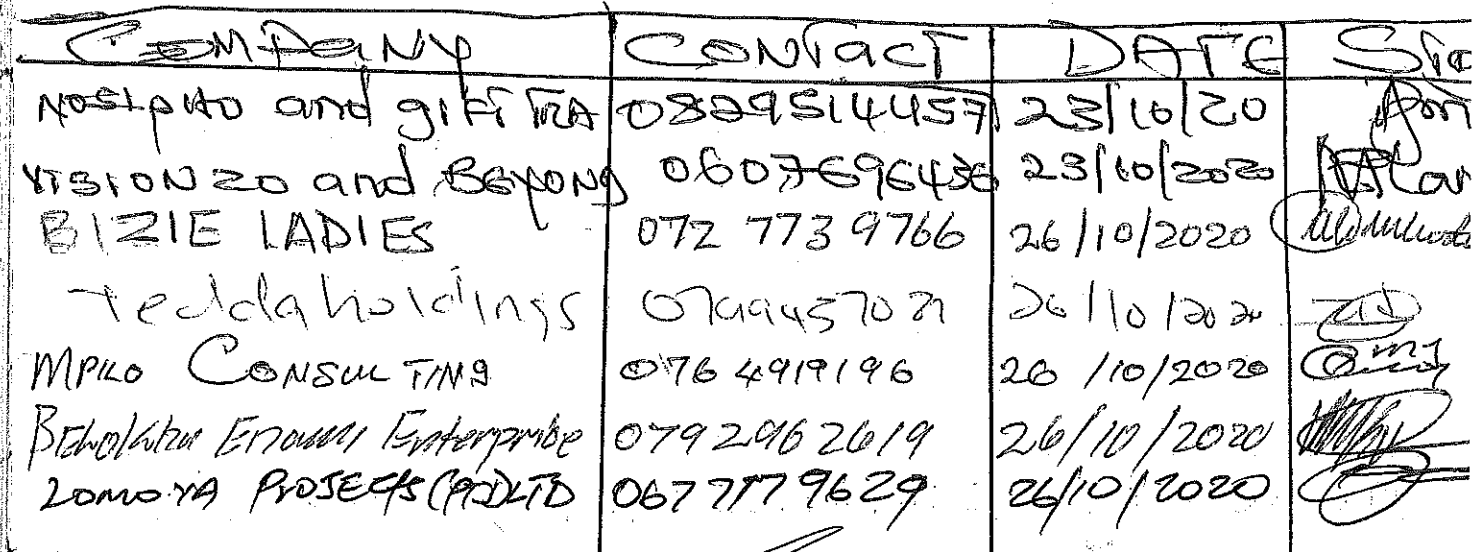 COMPANY CONTACT DATE
Nosipho and gift TRA 0829514457 23/10/20
VISION 20 and BEYOND 0607696436 23/10/2020
BIZIE LADIES 072 773 9766 26/10/2020
Tedda holdings 26/10/2020
MPILO CONSULTING 076 4919196 26/10/2020
Enterprise 0792962619 26/10/2020
ZAMOYA PROJECTS (PTY) LTD 0677779629 26/10/2020